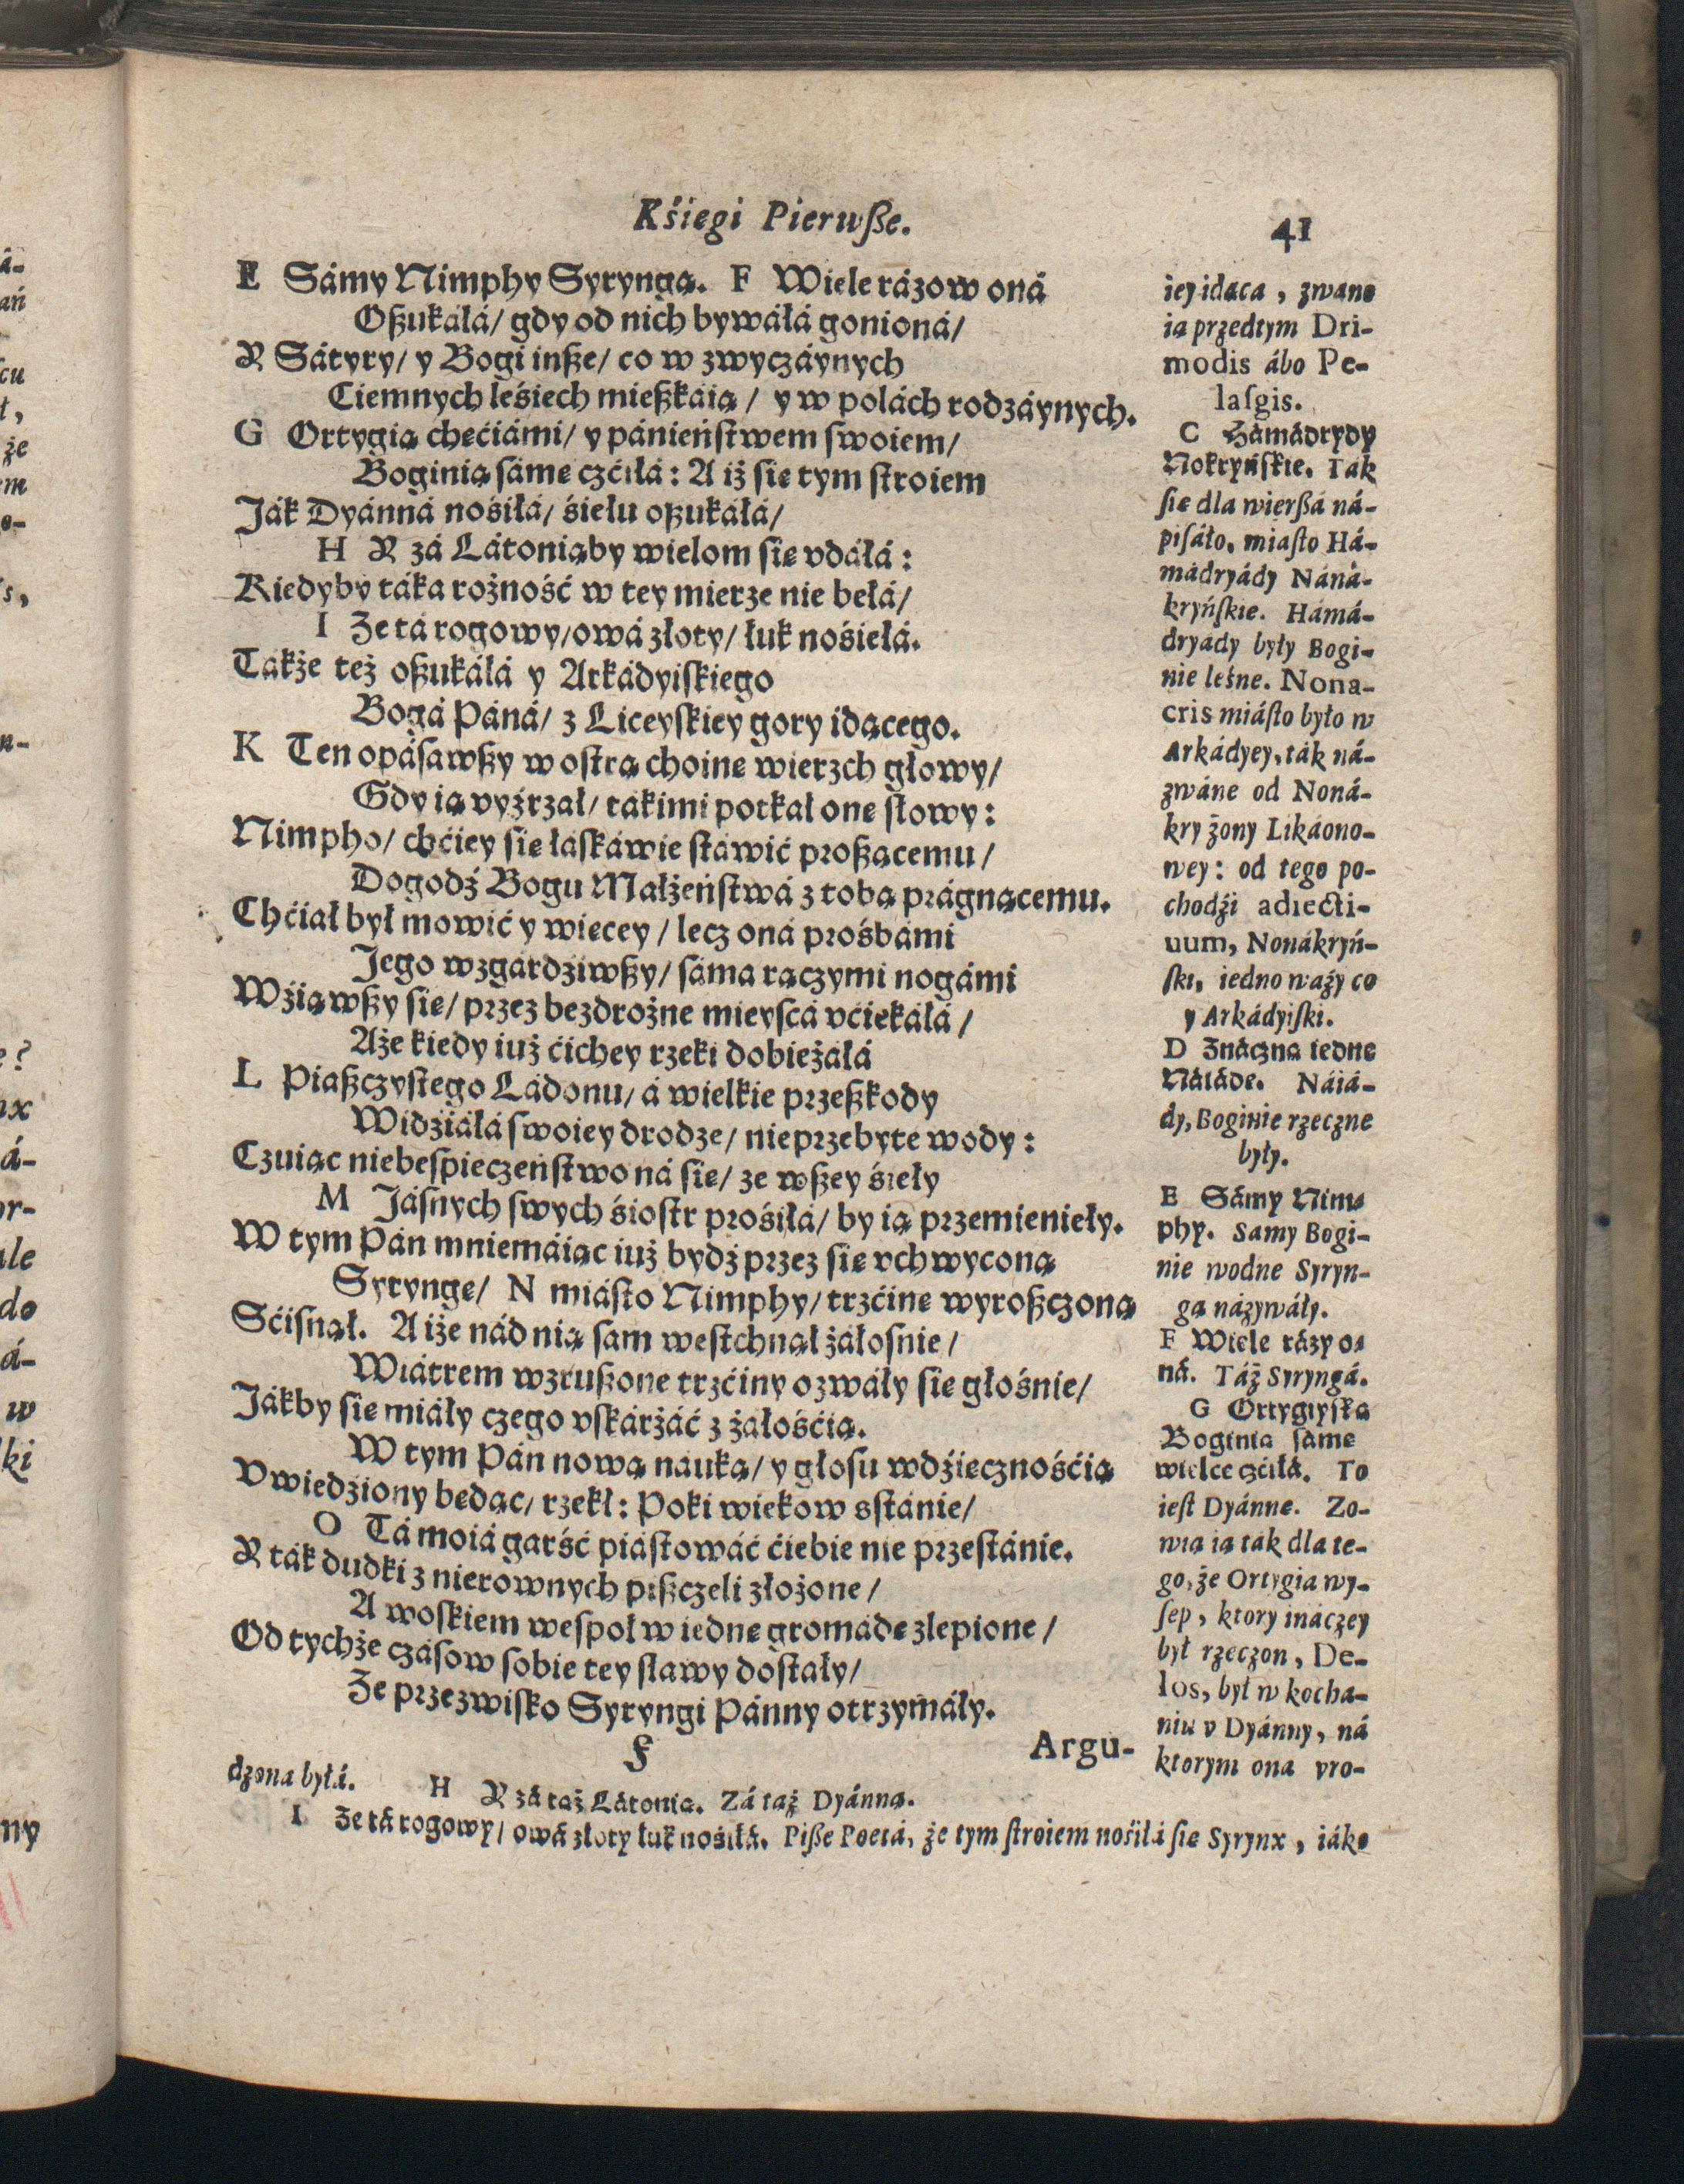 Kśiegi Pierwße.
41
E Sámy Nimphy Syryngą. F Wiele rázow oná
Oßukáłá/ gdy od nich bywáłá gonioná/
Y Sátyry/ y Bogi inße/ co w zwyczáynych
Ciemnych leśiech mießkáią/ y w polách rodzáynych.
G Ortygią chęćiámi/ y pánieństwem swoiem/
Boginią sámę czćiłá: A iż się tym stroiem
Ják Dyánná nośiłá/ śiełu oßukáłá/
H Y zá Látonią by wielom się vdáłá:
Kiedyby táka rożność w tey mierze nie bełá/
I Że tá rogowy/ owá złoty/ łuk nośiełá.
Także też oßukáłá y Arkádyiſkiego
Bogá Páná/ z Liceyſkiey gory idącego.
K Ten opáſawßy w ostrą choinę wierzch głowy/
Gdy ią vyźrzał/ tákimi potkał onę słowy:
Nimpho/ chćiey się łáſkáwie stáwić proßącemu/
Dogodź Bogu Małżeństwá z tobą prágnącemu.
Chćiał był mowić y więcey/ lecz oná prośbámi
Jego wzgárdźiwßy/ sámá rączymi nogámi
Wźiąwßy się/ przez bezdrożne mieyscá vćiekáłá/
Aże kiedy iuż ćichey rzeki dobieżáłá
L Piaßczystego Ládonu/ á wielkie przeßkody
Widźiáłá swoiey drodze/ nieprzebyte wody:
Czuiąc niebeſpieczeństwo ná się/ ze wßey śieły
M Jásnych swych śiostr prośiłá/ by ią przemienieły.
W tym Pán mniemáiąc iuż bydź przez się vchwyconą
Syryngę/ N miásto Nimphy/ trzćinę wyroßczoną
Sćiſnął. A iże nád nią sam westchnął żáłosnie/
Wiátrem wzrußone trzćiny ozwáły się głośnie/
Jákby się miáły czego vſkárżáć z żáłośćią.
W tym Pán nową nauką/ y głosu wdźięcznośćią
Vwiedźiony będąc/ rzekł: Poki wiekow sstánie/
O Tá moiá garść piástowáć ćiebie nie przestánie.
Y ták dudki z nierownych pißczeli złożone/
A woſkiem weſpoł w iednę gromádę zlepione/
Od tychże czáſow sobie tey sławy dostáły/
Że przezwiſko Syryngi Pánny otrzymáły.
F
Argu-
iey idąca, zwano
ią przedtym Dri-
modis ábo Pe-
laſgis.
C Hámádrydy
Nokryńſkie. Ták
ſię dla wierßá ná-
piſáło, miaſto Há-
mádryády Náná-
kryńſkie. Hámá-
dryády były Bogi-
nie leśne. Nona-
cris miáſto było w
Arkádyey, ták ná-
zwáne od Noná-
kry żony Likáono-
wey: od tego po-
chodźi adiecti-
uum, Nonákryń-
ſki, iedno waży co
y Arkádyiſki.
D Znáczna iednę
Náiádę. Náiá-
dy, Boginie rzeczne
były.
E Sámy Nim-
phy. Samy Bogi-
nie wodne Syryn-
gą názywáły.
F Wiele rázy o-
ná. Táż Syryngá.
G Ortygiyſką
Boginią sámę
wielce czćiłá. To
ieſt Dyánnę. Zo-
wią ią ták dla te-
go, że Ortygia wy-
ſep, ktory ináczey
był rzeczon, De-
los, był w kocha-
niu v Dyánny, ná
ktorym ona vro-
dzona byłá.
H Y zá táż Látonią. Zá táż Dyánną.
I Że tá rogowy/ owá złoty łuk nośiłá. Piße Poetá, że tym ſtroiem nośiłá ſię Syrynx, iáko